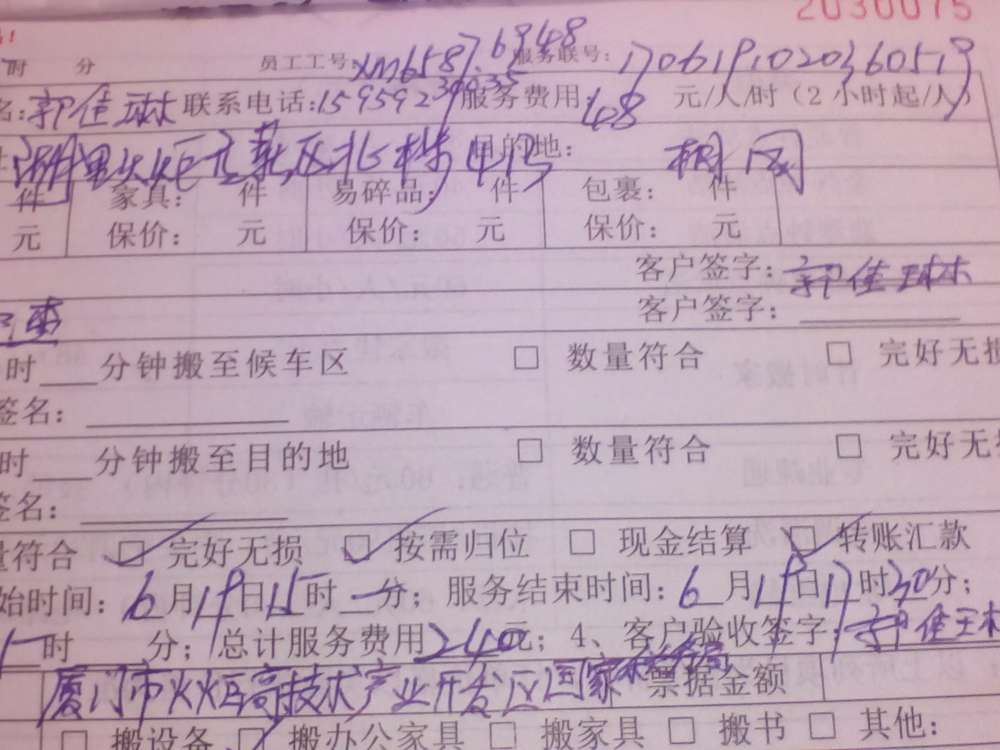 2030075
时 分 员工工号:xm6587.6948 服务联号:1706191020360519
名:郭佳琳 联系电话:15959239035 服务费用:48 元/人/时(2小时起/人)
湖里火炬高新区北楼4楼 目的地: 树冈
件 家具: 件 易碎品: 件 包裹: 件
元 保价: 元 保价: 元 保价: 元
客户签字:郭佳琳
客户签字:
时 分钟搬至候车区 □ 数量符合 □ 完好无损
签名:
时 分钟搬至目的地 □ 数量符合 □ 完好无损
签名:
量符合 □ 完好无损 □ 按需归位 □ 现金结算 □ 转账汇款
始时间:6月19日15时一分;服务结束时间:6月19日17时30分;
时 分;总计服务费用240元;4、客户验收签字:郭佳琳
厦门市火炬高技术产业开发区国家税务局 票据金额
□ 搬设备 □ 搬办公家具 □ 搬家具 □ 搬书 □ 其他: